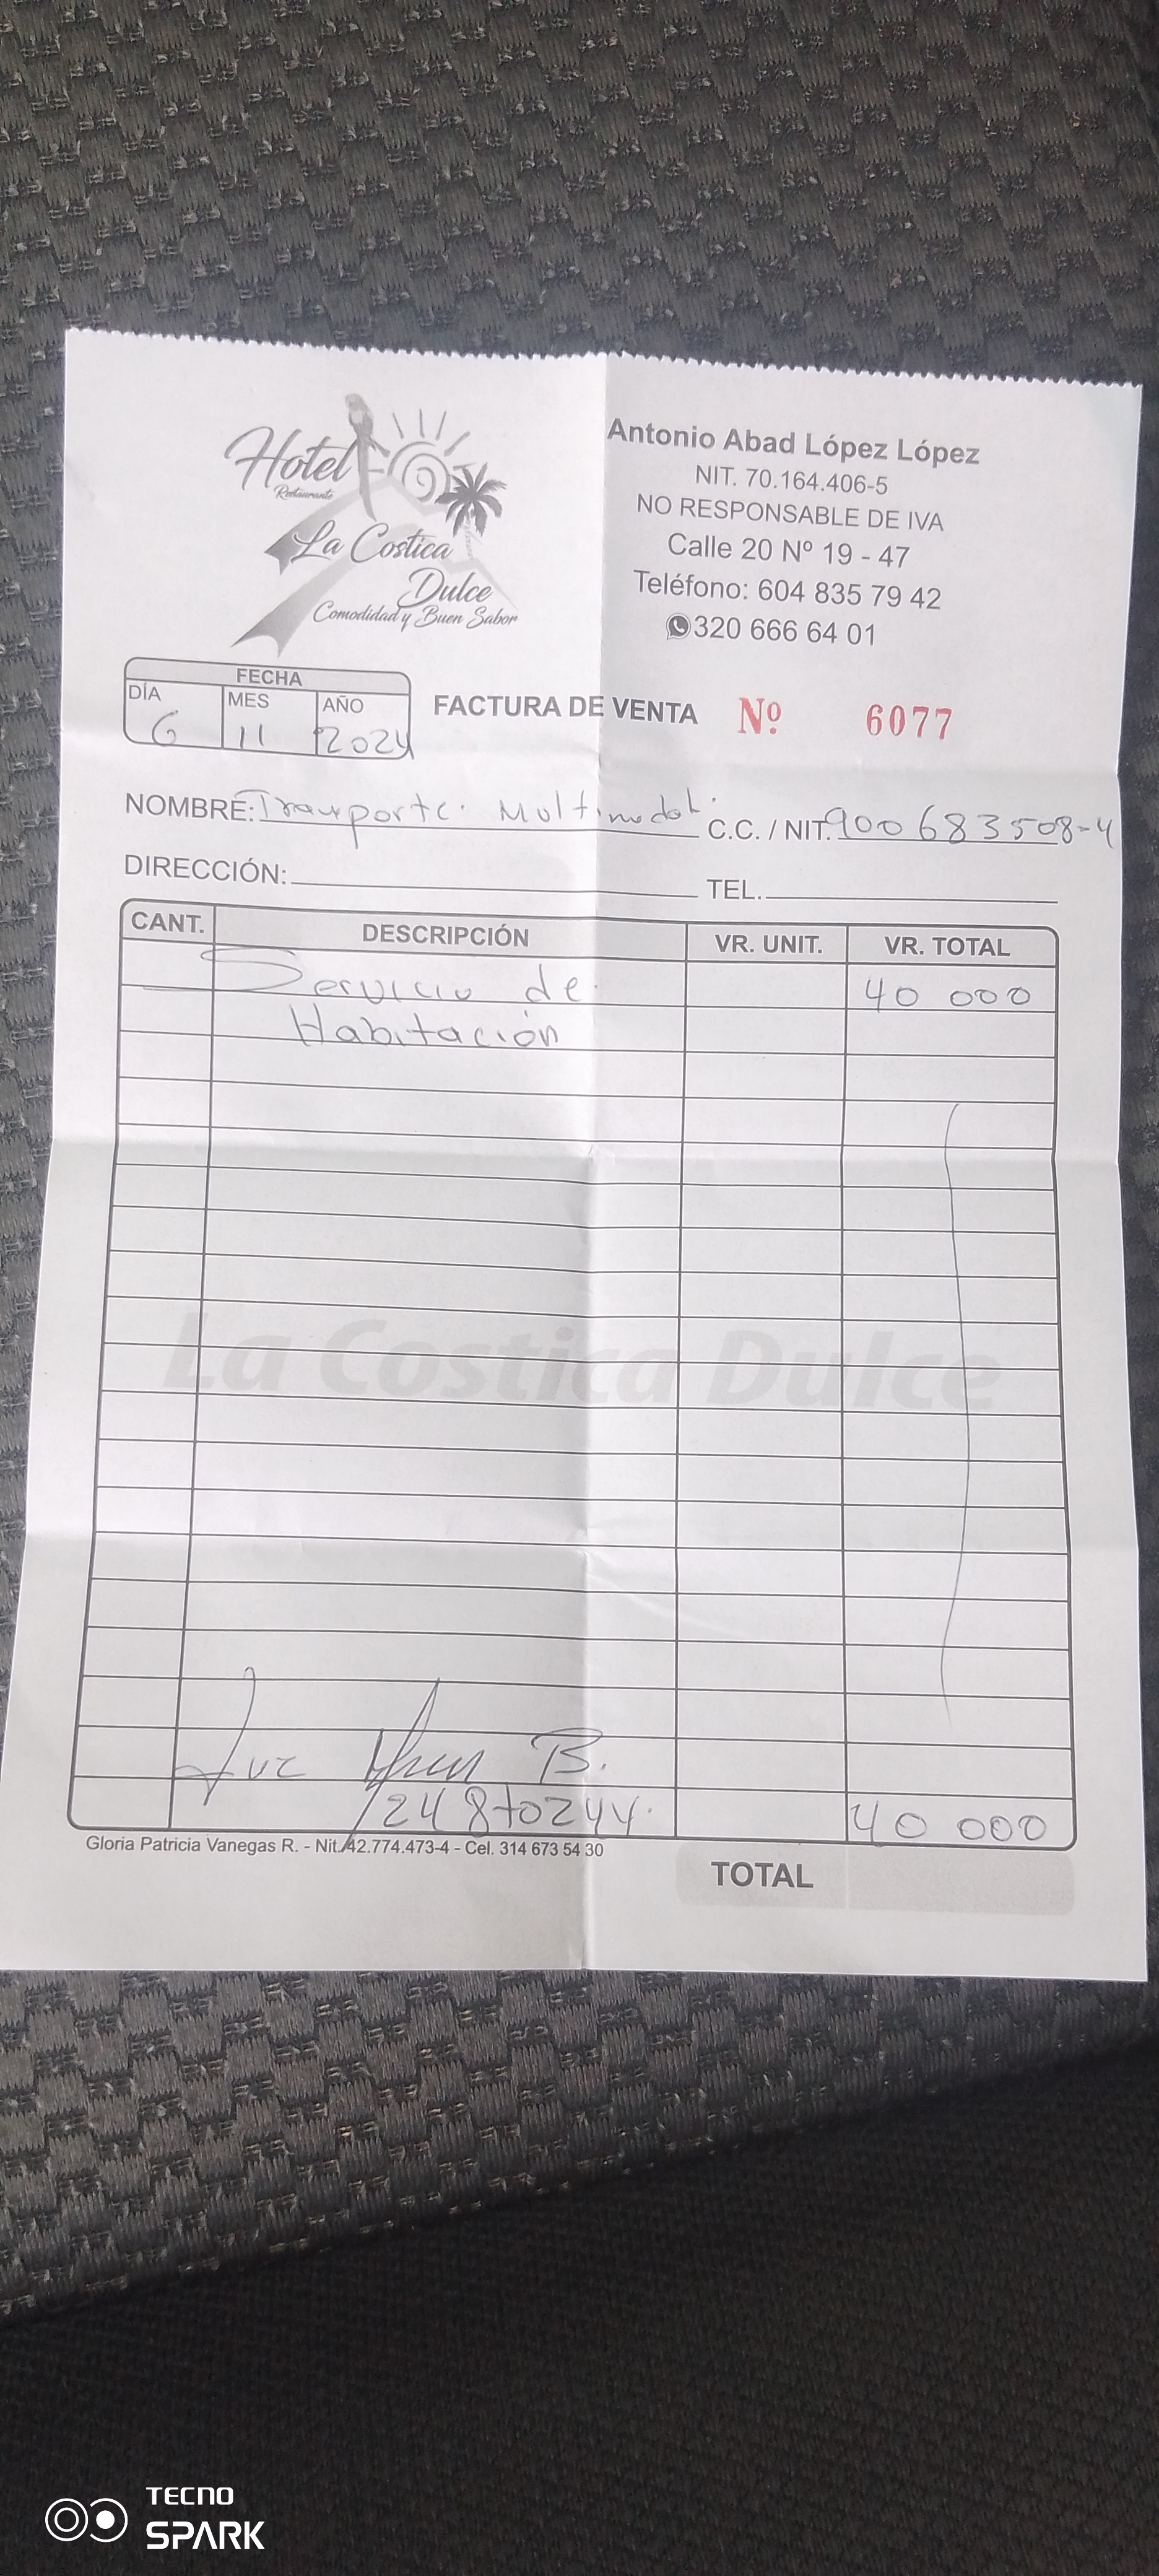 Hotel
Restaurante
La Costica
Dulce
Comodidad y Buen Sabor
Antonio Abad López López
NIT. 70.164.406-5
NO RESPONSABLE DE IVA
Calle 20 Nº 19 - 47
Teléfono: 604 835 79 42
320 666 64 01
FECHA
DÍA MES AÑO
6 11 2024
FACTURA DE VENTA Nº 6077
NOMBRE: Transporte Multimodal C.C. / NIT. 900683508-4
DIRECCIÓN: TEL.
CANT. DESCRIPCIÓN VR. UNIT. VR. TOTAL
Servicio de 40 000
Habitación
La Costica Dulce
B.
40 000
Gloria Patricia Vanegas R. - Nit. 42.774.473-4 - Cel. 314 673 54 30
TOTAL
TECNO
SPARK